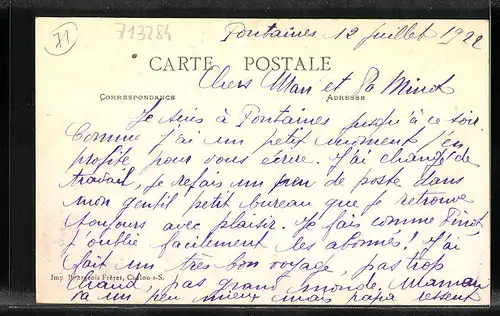 71
713284
Fontaines 12 juillet 1922
CARTE POSTALE
Chers Man et Pa Minot
CORRESPONDANCE
ADRESSE
Je suis à Fontaines jusqu'à ce soir.
Comme j'ai un petit moment j'en
profite pour vous écrire. J'ai changé de
travail, je refais un peu de poste dans
mon gentil petit bureau que je retrouve
toujours avec plaisir. Je fais comme Finot
j'oublie facilement les abonnés! J'ai
fait un très bon voyage, pas trop
Imp. Bourgeois Frères, Chalon s-S.
chaud, pas grand monde. Maman
va un peu mieux mais papa ressent